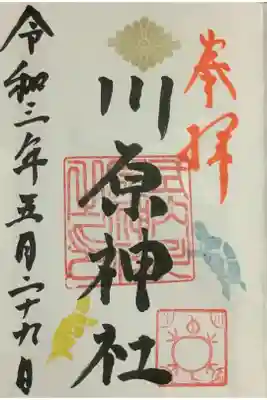 奉拝
川原神社
令和三年五月二十九日